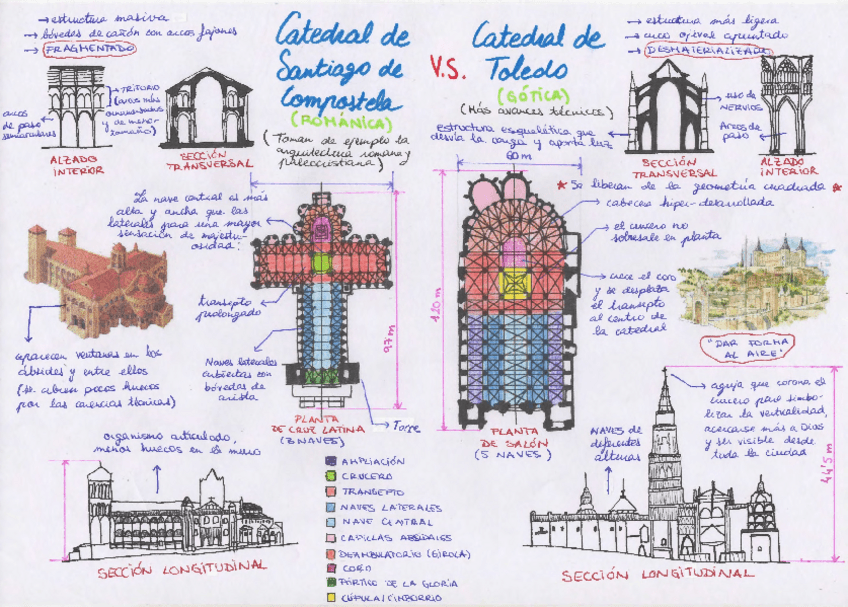 → estructura masiva
→ bóvedas de cañón con arcos fajones
→ FRAGMENTADO
Catedral de
Santiago de
Compostela
(ROMÁNICA)
(Toman de ejemplo la
arquitectura romana y
paleocristiana)
V.S.
Catedral de
Toledo
(GÓTICA)
(Más avances técnicos)
estructura esquelética que
desvía la carga y aporta luz
→ estructura más ligera
→ arco ojival apuntado
→ DESMATERIALIZADA
arcos
de paso
semicirculares
TRIFORIO
(arcos más
ornamentados
y de menor
tamaño)
ALZADO
INTERIOR
SECCIÓN
TRANSVERSAL
uso de
NERVIOS
Arcos de
paso
SECCIÓN
TRANSVERSAL
ALZADO
INTERIOR
La nave central es más
alta y ancha que las
laterales para una mayor
sensación de majestu-
osidad.
transepto
prolongado
Naves laterales
cubiertas con
bóvedas de
arista
aparecen ventanas en los
ábsides y entre ellos
(se abren pocos huecos
por las carencias técnicas)
97 m
Torre
PLANTA
DE CRUZ LATINA
(3 NAVES)
60 m
120 m
PLANTA
DE SALÓN
(5 NAVES)
★ Se liberan de la geometría cuadrada ★
→ cabecera hiper-desarrollada
el crucero no
sobresale en planta
crece el coro
y se desplaza
el transepto
al centro de
la catedral
"DAR FORMA
AL AIRE"
organismo articulado,
menos huecos en el muro
SECCIÓN LONGITUDINAL
AMPLIACIÓN
CRUCERO
TRANSEPTO
NAVES LATERALES
NAVE CENTRAL
CAPILLAS ABSIDALES
DEAMBULATORIO (GIROLA)
CORO
PÓRTICO DE LA GLORIA
CÚPULA/CIMBORRIO
NAVES DE
diferentes
alturas
→ aguja que corona el
crucero para simbo-
lizar la verticalidad,
acercarse más a Dios
y ser visible desde
toda la ciudad
44'5 m
SECCIÓN LONGITUDINAL